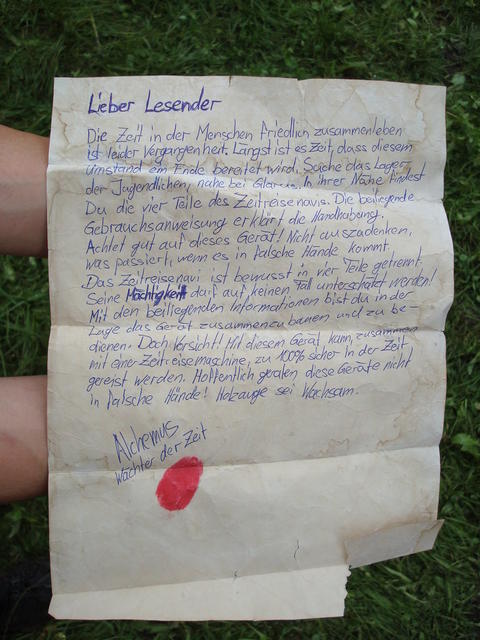 Lieber Lesender
Die Zeit in der Menschen friedlich zusammenleben
ist leider vergangenheit. Längst ist es Zeit, dass diesem
Umstand ein Ende bereitet wird. Suche das Lager
der Jugendlichen nahe bei Glarus. In ihrer Nähe findest
Du die vier Teile des Zeitreisenavis. Die beiliegende
Gebrauchsanweisung erklärt die Handhabung.
Achtet gut auf dieses Gerät! Nicht auszudenken,
was passiert wenn es in falsche Hände kommt.
Das Zeitreisenavi ist bewusst in vier Teile getrennt.
Seine Mächtigkeit darf auf keinen Fall unterschätzt werden!
Mit den beiliegenden Informationen bist du in der
Lage das Gerät zusammenzubauen und zu be-
dienen. Doch Vorsicht! Mit diesem Gerät kann, zusammen
mit einer Zeitreisemaschine, zu 100% sicher in der Zeit
gereist werden. Hoffentlich geraten diese Geräte nicht
in falsche Hände! Holzauge sei wachsam.
Alchemus
Wächter der Zeit